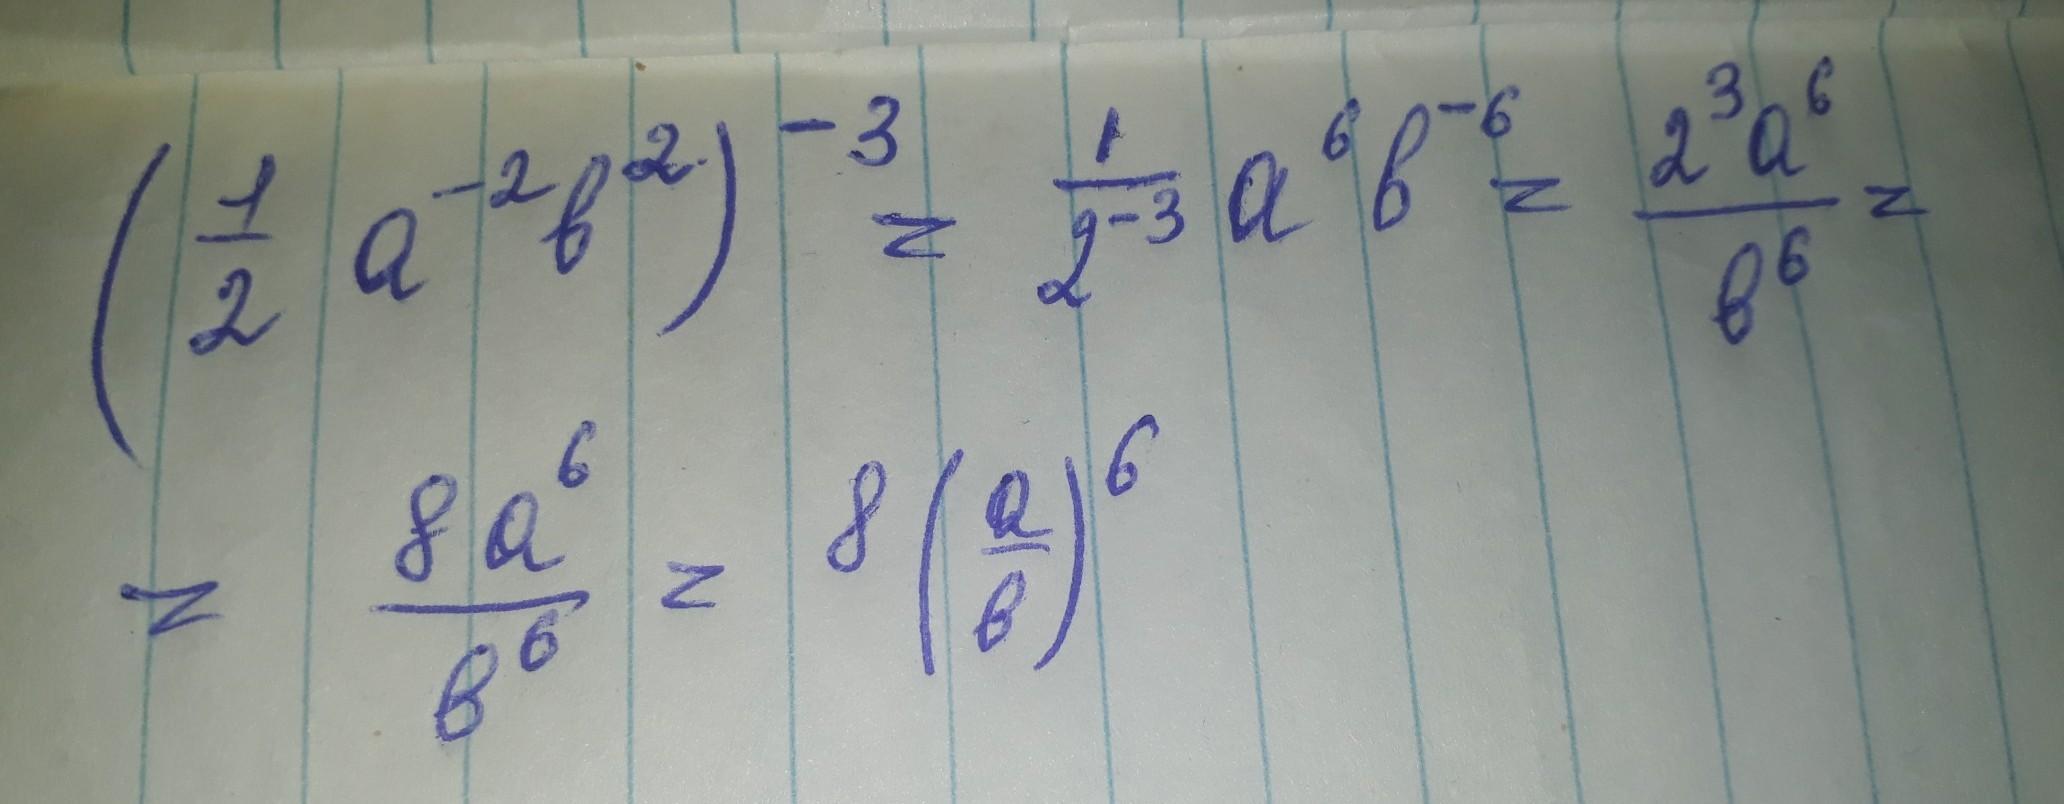 (1/2 a⁻²b²)⁻³ = 1/2⁻³ a⁶b⁻⁶ = 2³a⁶/b⁶ =
= 8a⁶/b⁶ = 8(a/b)⁶